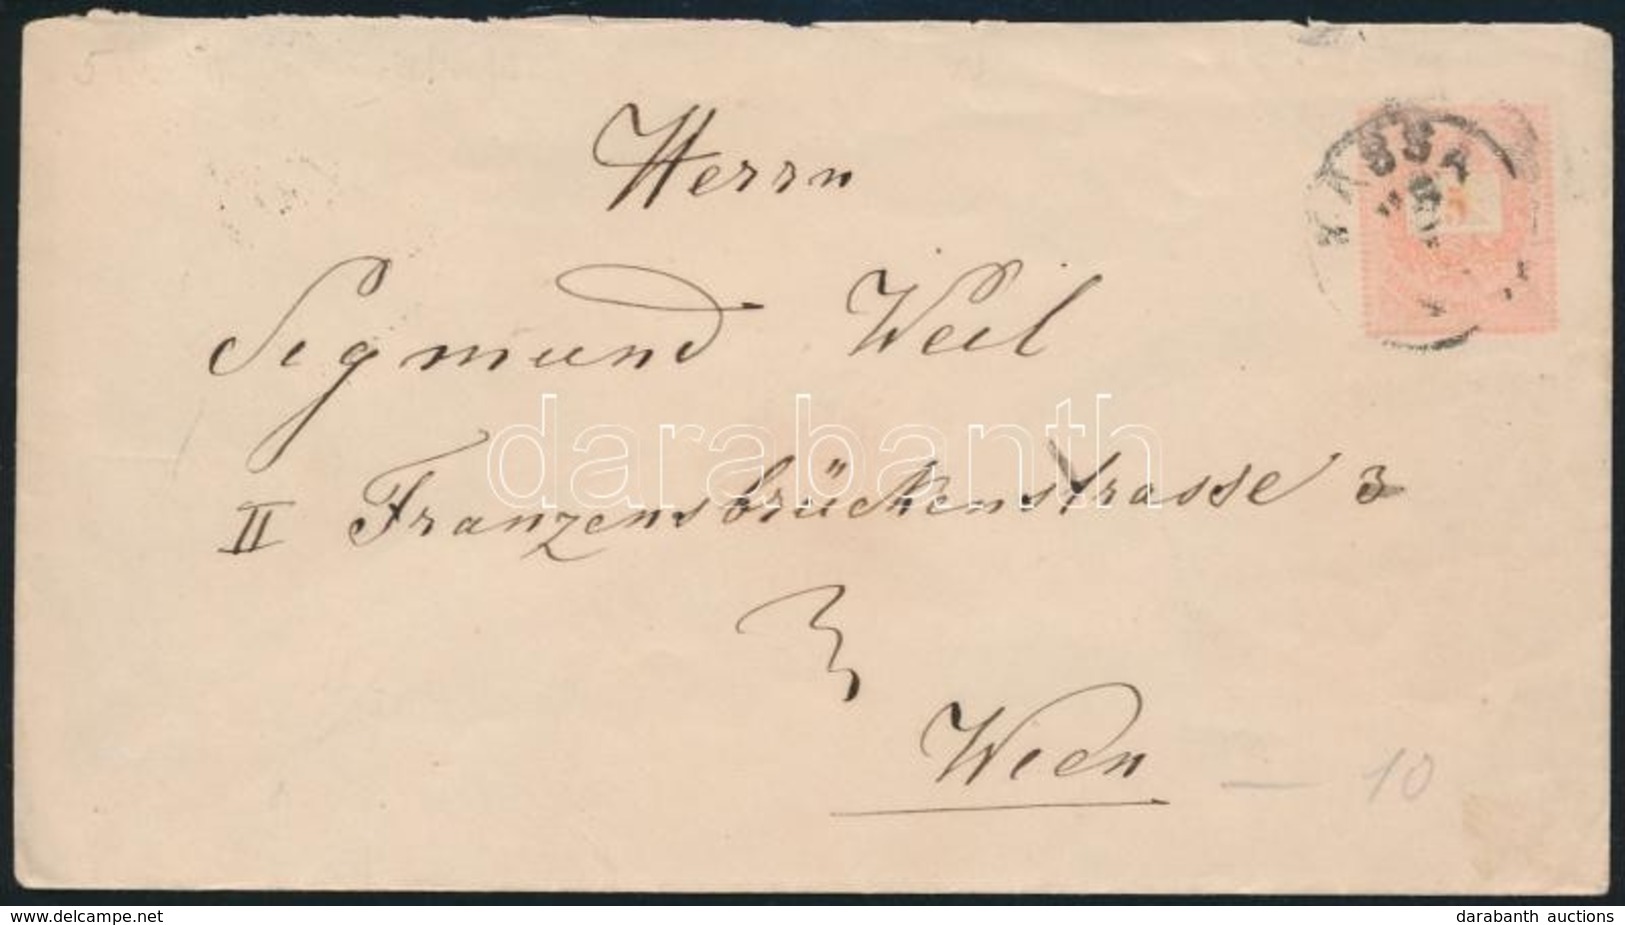 5
Herrn
KASSA
Sigmund Weil
darabanth
II Franzensbrückenstrasse 3
Wien
— 10
www.delcampe.net
darabanth auctions